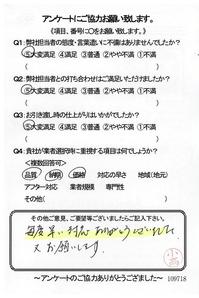 アンケートにご協力お願い致します。
《項目、番号に○をお願い致します。》
Q1:弊社担当者の態度・言葉遣いに不備はありませんでしたか？
⑤大変満足 ④満足 ③普通 ②やや不満 ①不満
Q2:弊社担当者との打ち合わせはご満足いただけましたか？
⑤大変満足 ④満足 ③普通 ②やや不満 ①不満
Q3:お引き渡し時の仕上がりはいかがでしたか？
⑤大変満足 ④満足 ③普通 ②やや不満 ①不満
Q4:貴社が業者選択時に重視する項目は何でしょうか？
<複数回答可>
品質 納期 価格 対応の早さ 地域(地元)
アフター対応 業者規模 専門性
その他( )
その他ご意見、ご要望等ございましたらご記入下さい。
毎度早い対応ありがとうございました
又お願いします。
～アンケートのご協力ありがとうございました～
109718